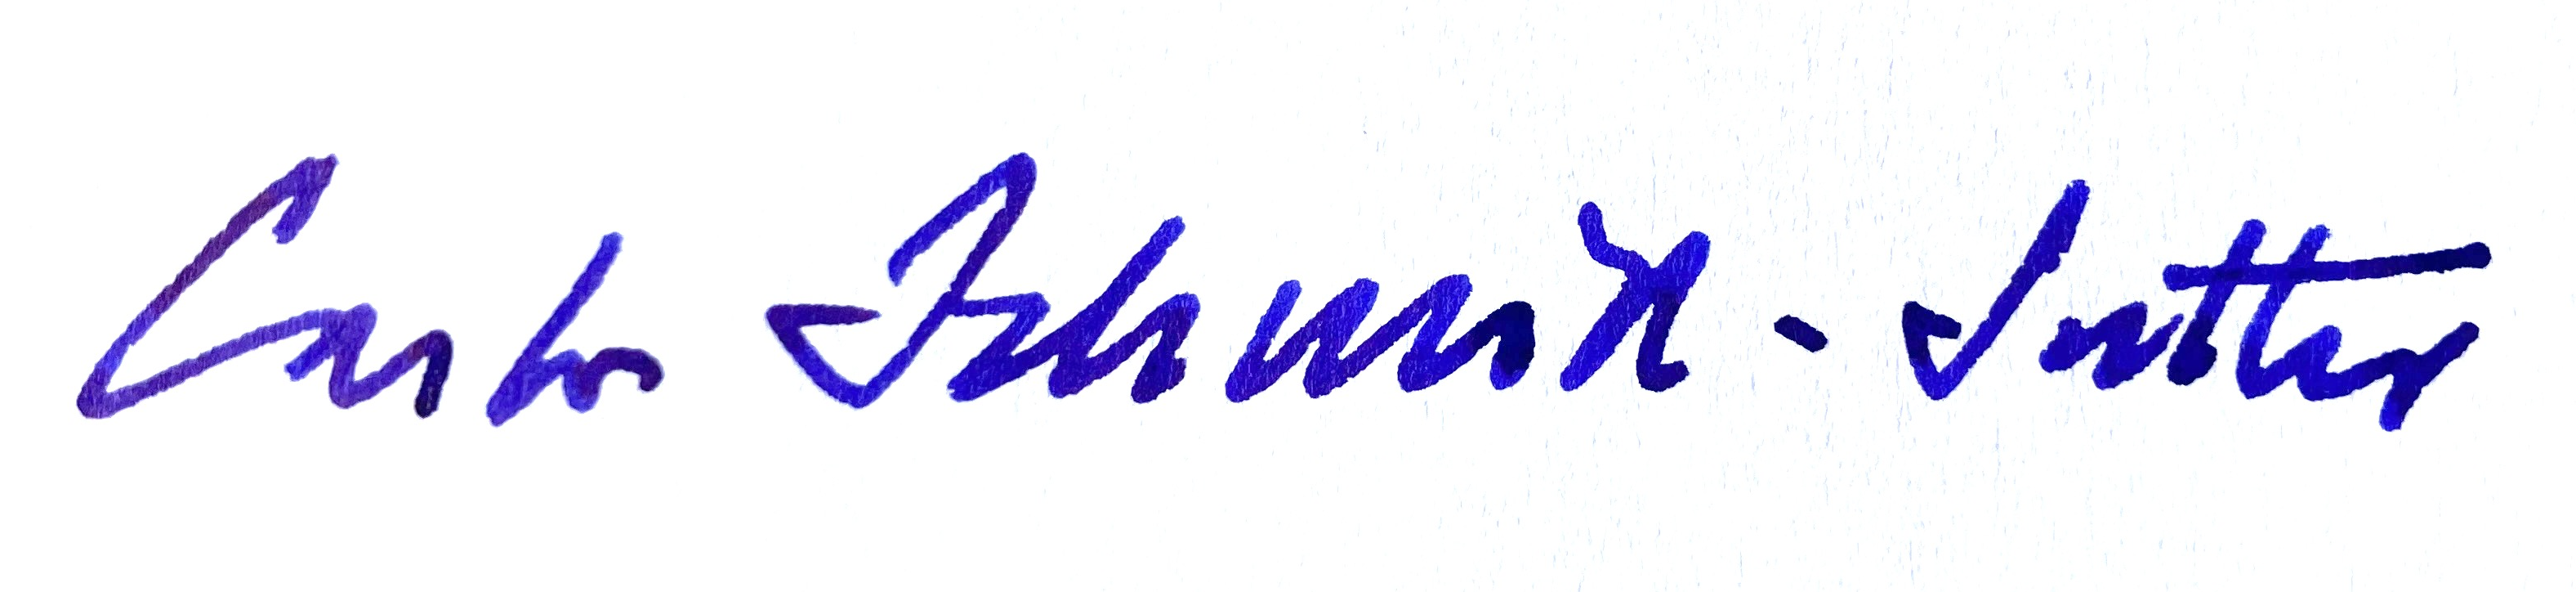 Carlo Schmid-Sutter